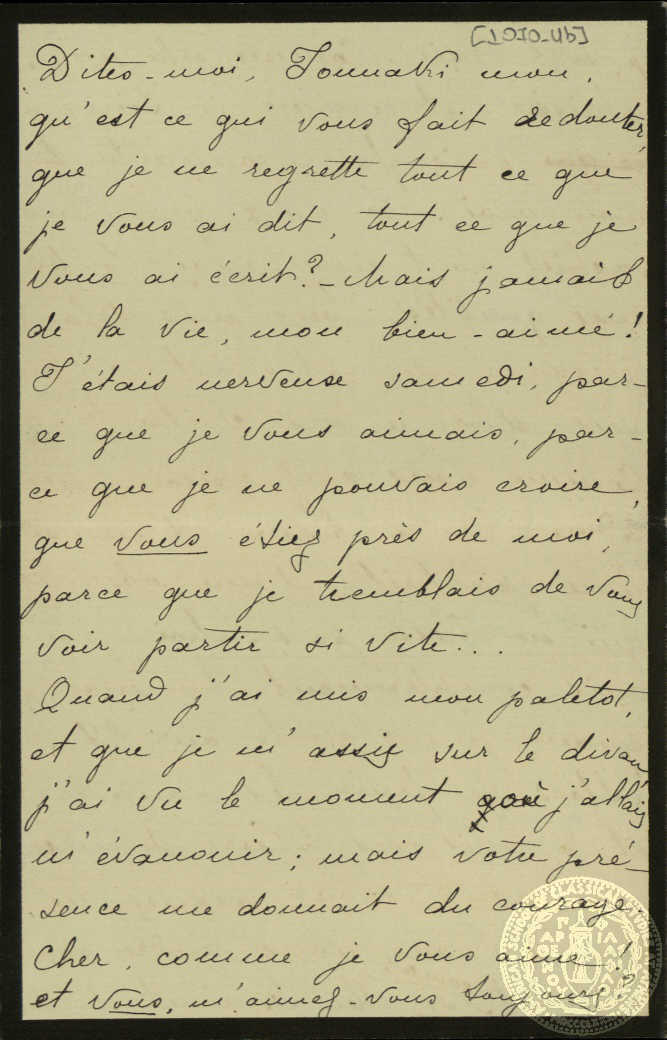 [1010-4b]
Dites-moi, Tonnaki mou,
qu'est ce qui vous fait redouter,
que je ne regrette tout ce que
je vous ai dit, tout ce que je
vous ai écrit? - Mais jamais
de la vie, mon bien-aimé!
J'étais nerveuse samedi, par-
ce que je vous aimais, par-
ce que je ne pouvais croire,
que vous étiez près de moi,
parce que je tremblais de vous
voir partir si vite...
Quand j'ai mis mon paletot,
et que je m'assis sur le divan
j'ai vu le moment où j'allais
m'évanouir; mais votre pré-
sence me donnait du courage.
Cher, comme je vous aime!
et vous, m'aimez-vous toujours?